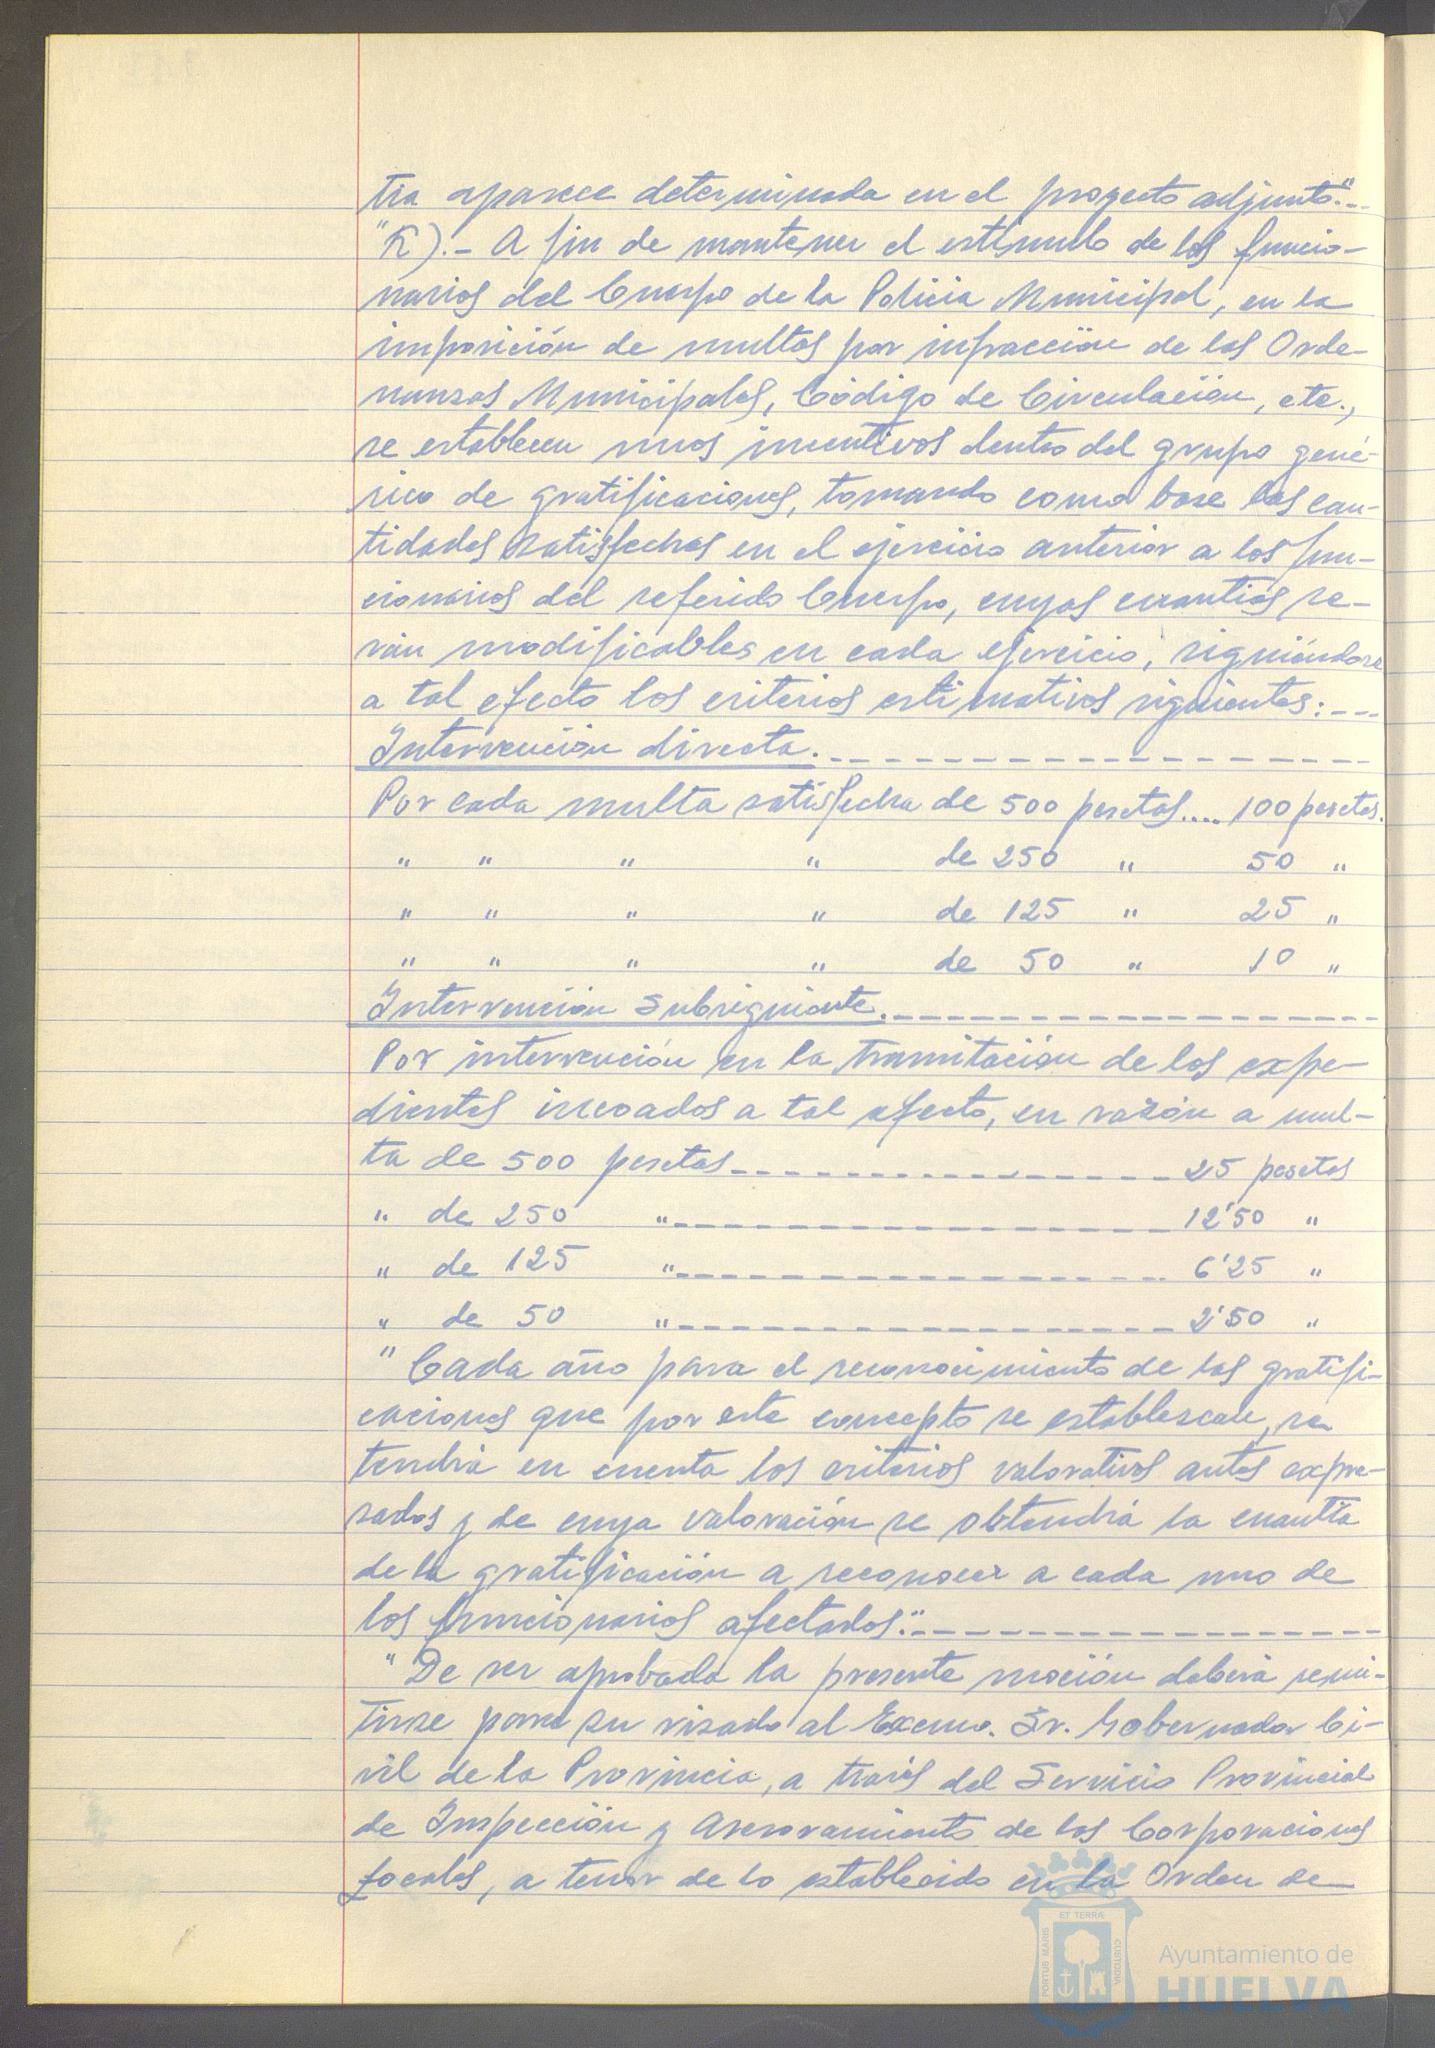 tra aparece determinada en el proyecto adjunto."--
"K).- A fin de mantener el estímulo de los funcio-
narios del Cuerpo de la Policía Municipal, en la
imposición de multas por infracción de las Orde-
nanzas Municipales, Código de Circulación, etc.,
se establecen unos incentivos dentro del grupo gené-
rico de gratificaciones, tomando como base las can-
tidades satisfechas en el ejercicio anterior a los fun-
cionarios del referido Cuerpo, cuyas cuantías se-
rán modificables en cada ejercicio, siguiéndose
a tal efecto los criterios estimativos siguientes:---
Intervención directa.--------------------
Por cada multa satisfecha de 500 pesetas.... 100 pesetas.
" " " " de 250 " 50 "
" " " " de 125 " 25 "
" " " " de 50 " 10 "
Intervención Subsiguiente.--------------------
Por intervención en la tramitación de los expe-
dientes incoados a tal efecto, en razón a mul-
ta de 500 pesetas------------------ 25 pesetas
" de 250 "-------------------- 12'50 "
" de 125 "-------------------- 6'25 "
" de 50 "-------------------- 2'50 "
"Cada año para el reconocimiento de las gratifi-
caciones que por este concepto se establezcan, se
tendrá en cuenta los criterios valorativos antes expre-
sados y de cuya valoración se obtendrá la cuantía
de la gratificación a reconocer a cada uno de
los funcionarios afectados."------------------
"De ser aprobada la presente moción deberá remi-
tirse para su visado al Excmo. Sr. Gobernador Ci-
vil de la Provincia, a través del Servicio Provincial
de Inspección y Asesoramiento de las Corporaciones
Locales, a tenor de lo establecido en la Orden de
ET TERRÆ
PORTUS MARIS
CUSTODIA
Ayuntamiento de
HUELVA